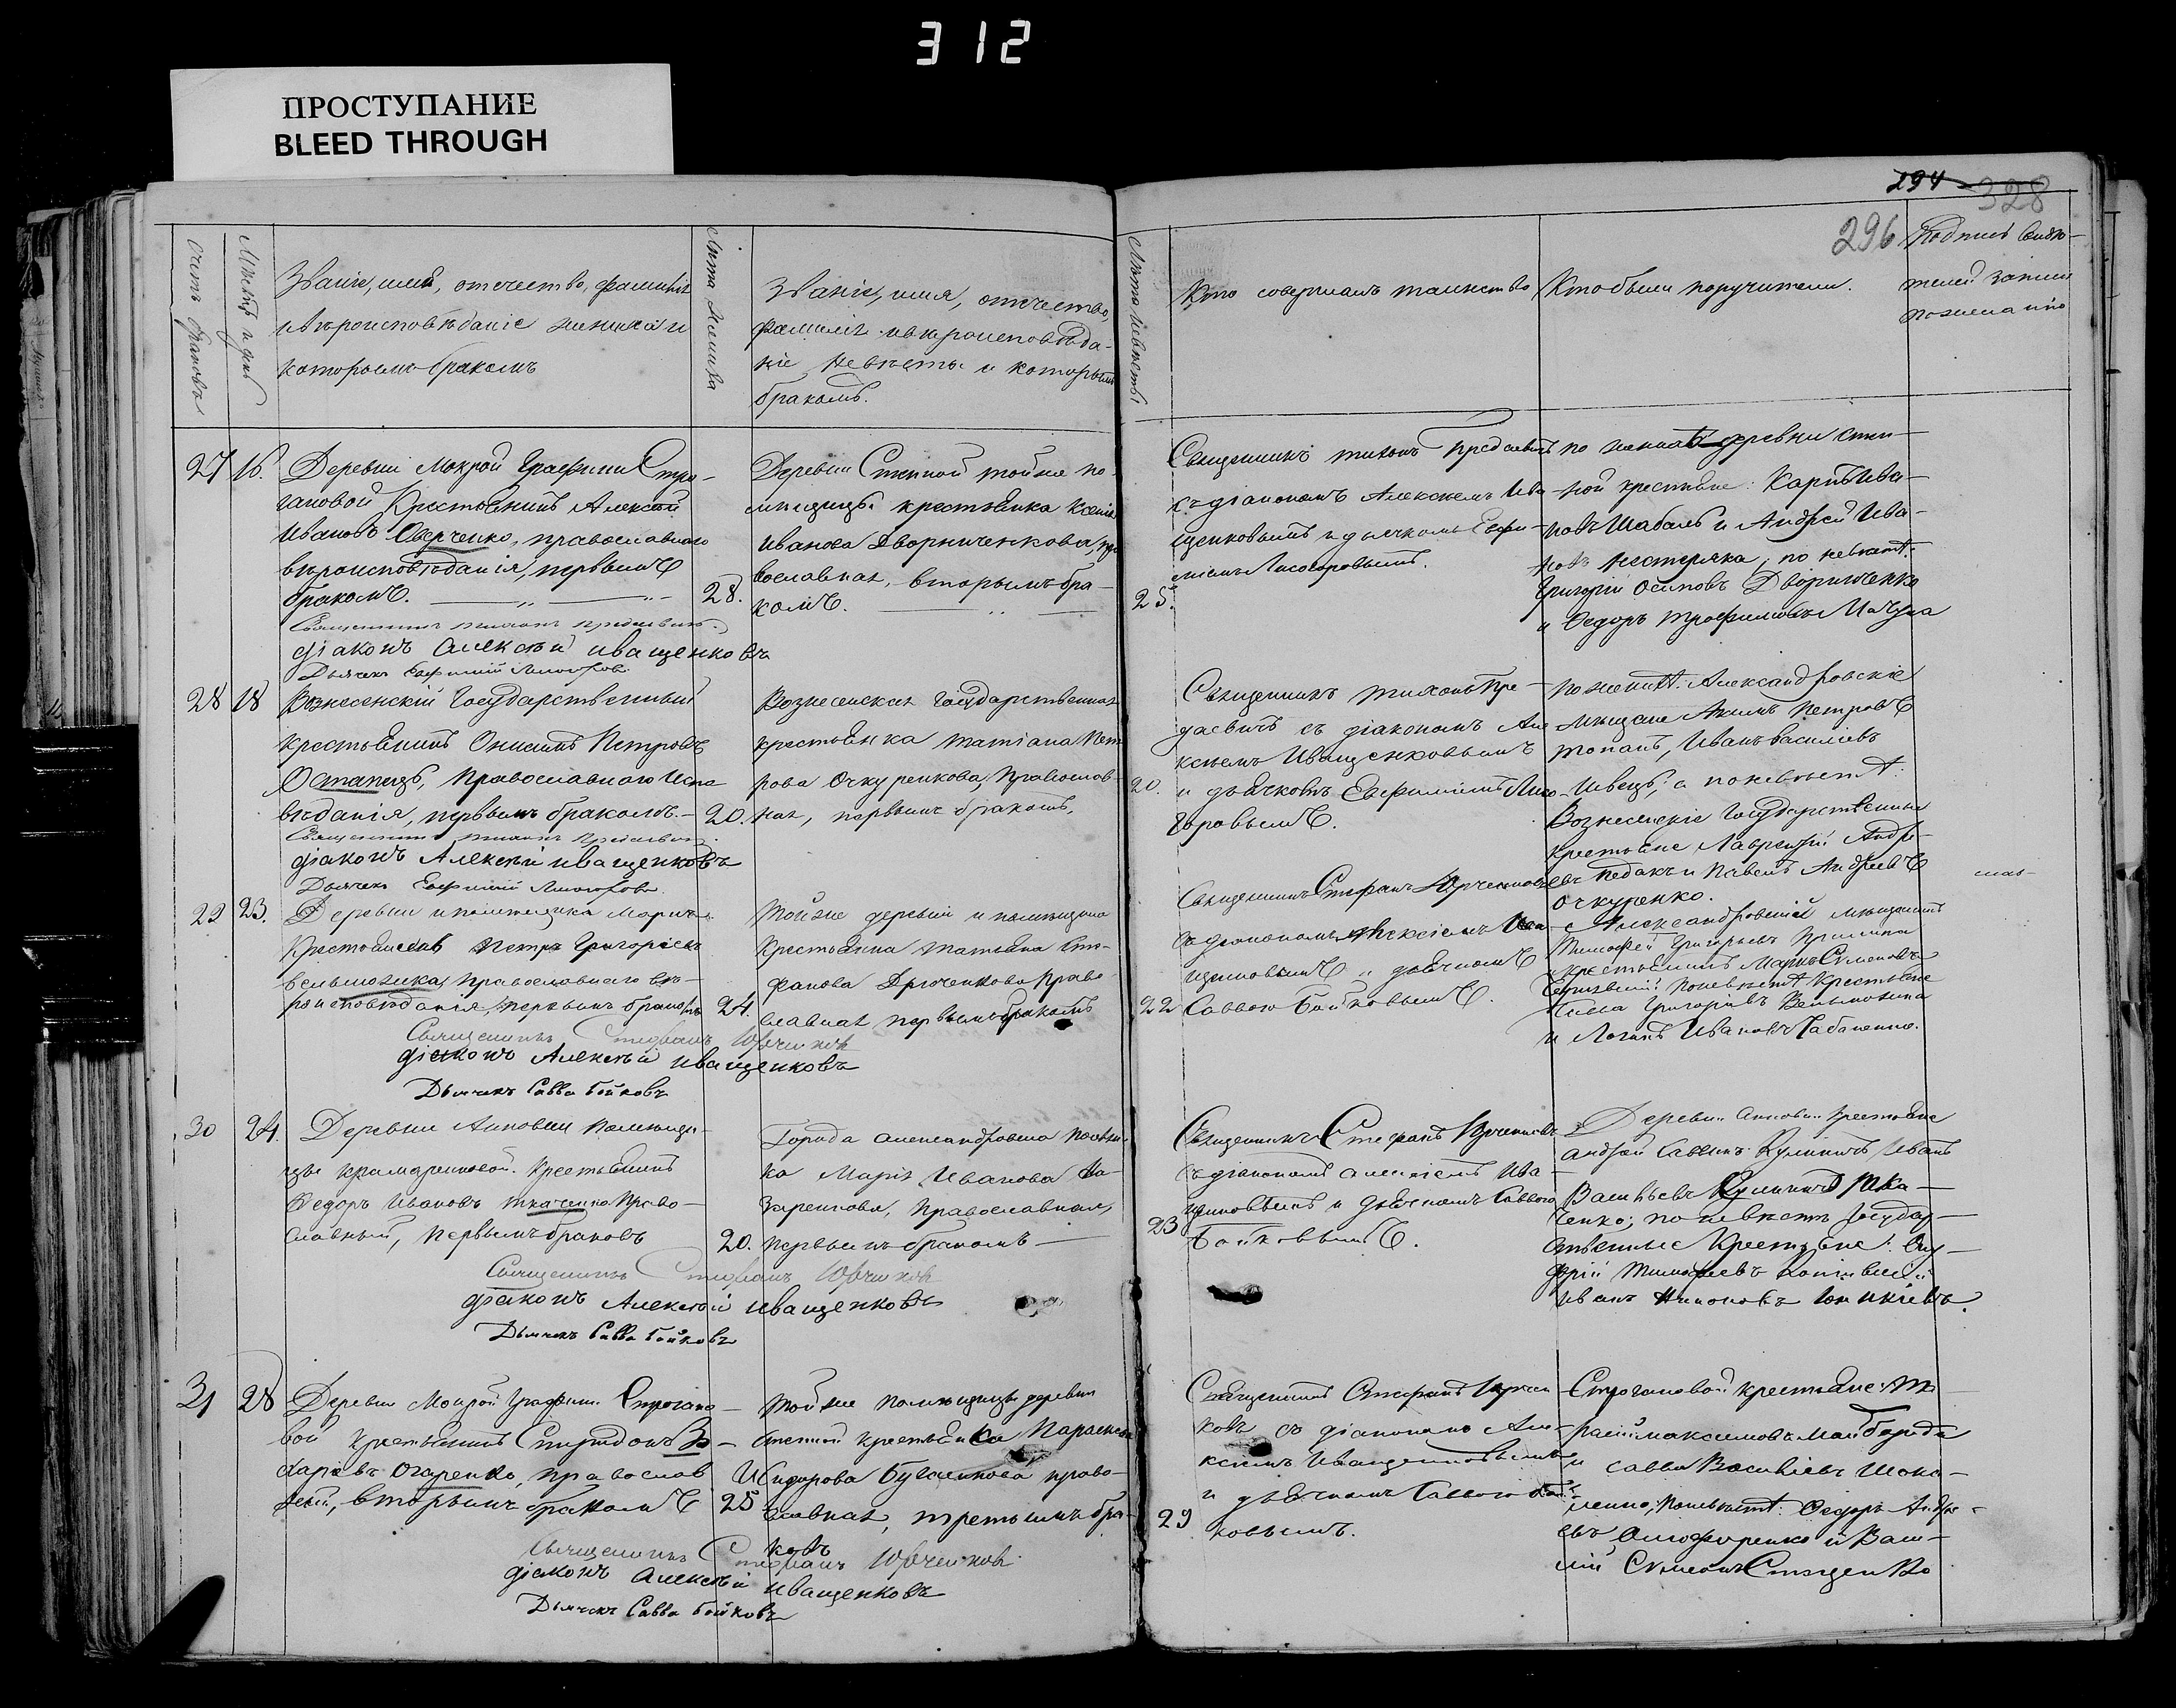 312
ПРОСТУПАНИЕ
BLEED THROUGH
294
328
296
Счетъ браковъ
Мѣсяцъ и день
Званіе, имя, отечество, фамилія
и вѣроисповѣданіе жениха и
которымъ бракомъ
Лѣта жениха
Званіе, имя, отчество,
фамилія и вѣроисповѣда-
ніе невѣсты и которымъ
бракомъ.
Лѣта невѣсты
Кто совершалъ таинство
Кто были поручители.
Подпись свидѣ-
телей записи
по желанію
27 16.
Деревни Мокрой Графини Стро-
гановой Крестьянинъ Алексѣй
Ивановъ Сверченко, православнаго
вѣроисповѣданія, первымъ
бракомъ.
28.
Священникъ Тихонъ Предаевичъ
діаконъ Алексѣй Иващенковъ
Дьячекъ Евфимій Лисогоровъ
Деревни Степной той же по-
мѣщицы крестьянка Ксенія
Иванова Дворниченкова, пра
вославная, вторымъ бра-
комъ.
25.
Священникъ Тихонъ Предаевичъ
съ діакономъ Алексѣемъ Ива
щенковымъ и дьячкомъ Евфи-
міемъ Лисогоровымъ.
по женихѣ деревни Степ-
ной крестьяне: Карпъ Ива-
новъ Шабаль и Андрей Ива-
новъ Нестеряка, по невѣстѣ:
Григорій Осиповъ Дворниченко
и Федоръ Трофимовъ Мачула
28 18
Вознесенскій Государственный
крестьянинъ Онисимъ Петровъ
Остапецъ, Православнаго Испо
вѣданія, первымъ бракомъ.
20.
Священникъ Тихонъ Предаевичъ
діаконъ Алексѣй Иващенковъ
Дьячекъ Евфимій Лисогоровъ
Вознесенская Государственная
крестьянка Татіана Пет
рова Очкуренкова, Православ-
ная, первымъ бракомъ.
20.
Священникъ Тихонъ Пре-
даевичъ съ діакономъ Але
ксѣемъ Иващенковымъ
и дьячкомъ Евфиміемъ Лисо
горовымъ.
по женихѣ: Александровскіе
мѣщане Акимъ Петровъ
Топалъ, Иванъ Василіевъ
Швецъ; а по невѣстѣ:
Вознесенскіе Государственные
крестьяне Лаврентій Андре-
евъ Педакъ и Павелъ Андреевъ
Очкуренко.
29 23.
Деревни и помѣщика
Крестьянинъ Петръ Григорьевъ
Вельможка, православнаго вѣ-
роисповѣданія, первымъ бракомъ
24.
Священникъ Стефанъ Юрченковъ
діаконъ Алексѣй Иващенковъ
Дьячекъ Савва Бойковъ
Той же деревни и помѣщика
Крестьянка Татьяна Сте-
фанова Дрюченкова Право-
славная первымъ бракомъ
22
Священникъ Стефанъ Юрченковъ
съ діакономъ Алексіемъ Ива-
щенковымъ и дьячкомъ
Саввою Бойковымъ.
Александровскій мѣщанинъ
Тимофей Григорьевъ
и крестьянинъ Марко Семеновъ
по невѣстѣ Крестьяне
Григорьевъ Вельможка
и Логинъ Ивановъ Табаненко.
30 24.
Деревни Анновки Помѣщи-
цы Крамаренковой. Крестьянинъ
Федоръ Ивановъ Ткаченко Право-
славный, первымъ бракомъ
20.
Священникъ Стефанъ Юрченковъ
діаконъ Алексѣй Иващенковъ
Дьячекъ Савва Бойковъ
Города Александровска
ка Марія Иванова На-
заренкова, Православная,
первымъ бракомъ
23
Священникъ Стефанъ Юрченковъ
съ діакономъ Алексіемъ Ива-
щенковымъ и дьячкомъ Саввою
Бойковымъ.
Деревни Анновки Крестьяне
Андрей Саввинъ Куликъ Иванъ
Васильевъ Ткa-
ченко; по невѣстѣ Государ-
ственные Крестьяне:
Тимофеевъ
Иванъ
31 28
Деревни Мокрой Графини Строгано-
вой крестьянинъ Спиридонъ За-
харіевъ Огаренко, православ
ный, вторымъ бракомъ
25
Священникъ Стефанъ Юрченковъ
діаконъ Алексѣй Иващенковъ
Дьячекъ Савва Бойковъ
Той же помѣщицы деревни
Степной крестьянка Параскева
Исидорова право-
славная, третьимъ бра-
комъ
29
Священникъ Стефанъ Юрчен
ковъ съ діакономъ Але-
ксѣемъ Иващенковымъ
и дьячкомъ Саввою Бой-
ковымъ.
Строгановой крестьяне:
Максимовъ Майборода
и Савва Василіевъ
по невѣстѣ: Федоръ Андре-
евъ Онофренко и Васи-
лій Семеновъ Стаценко